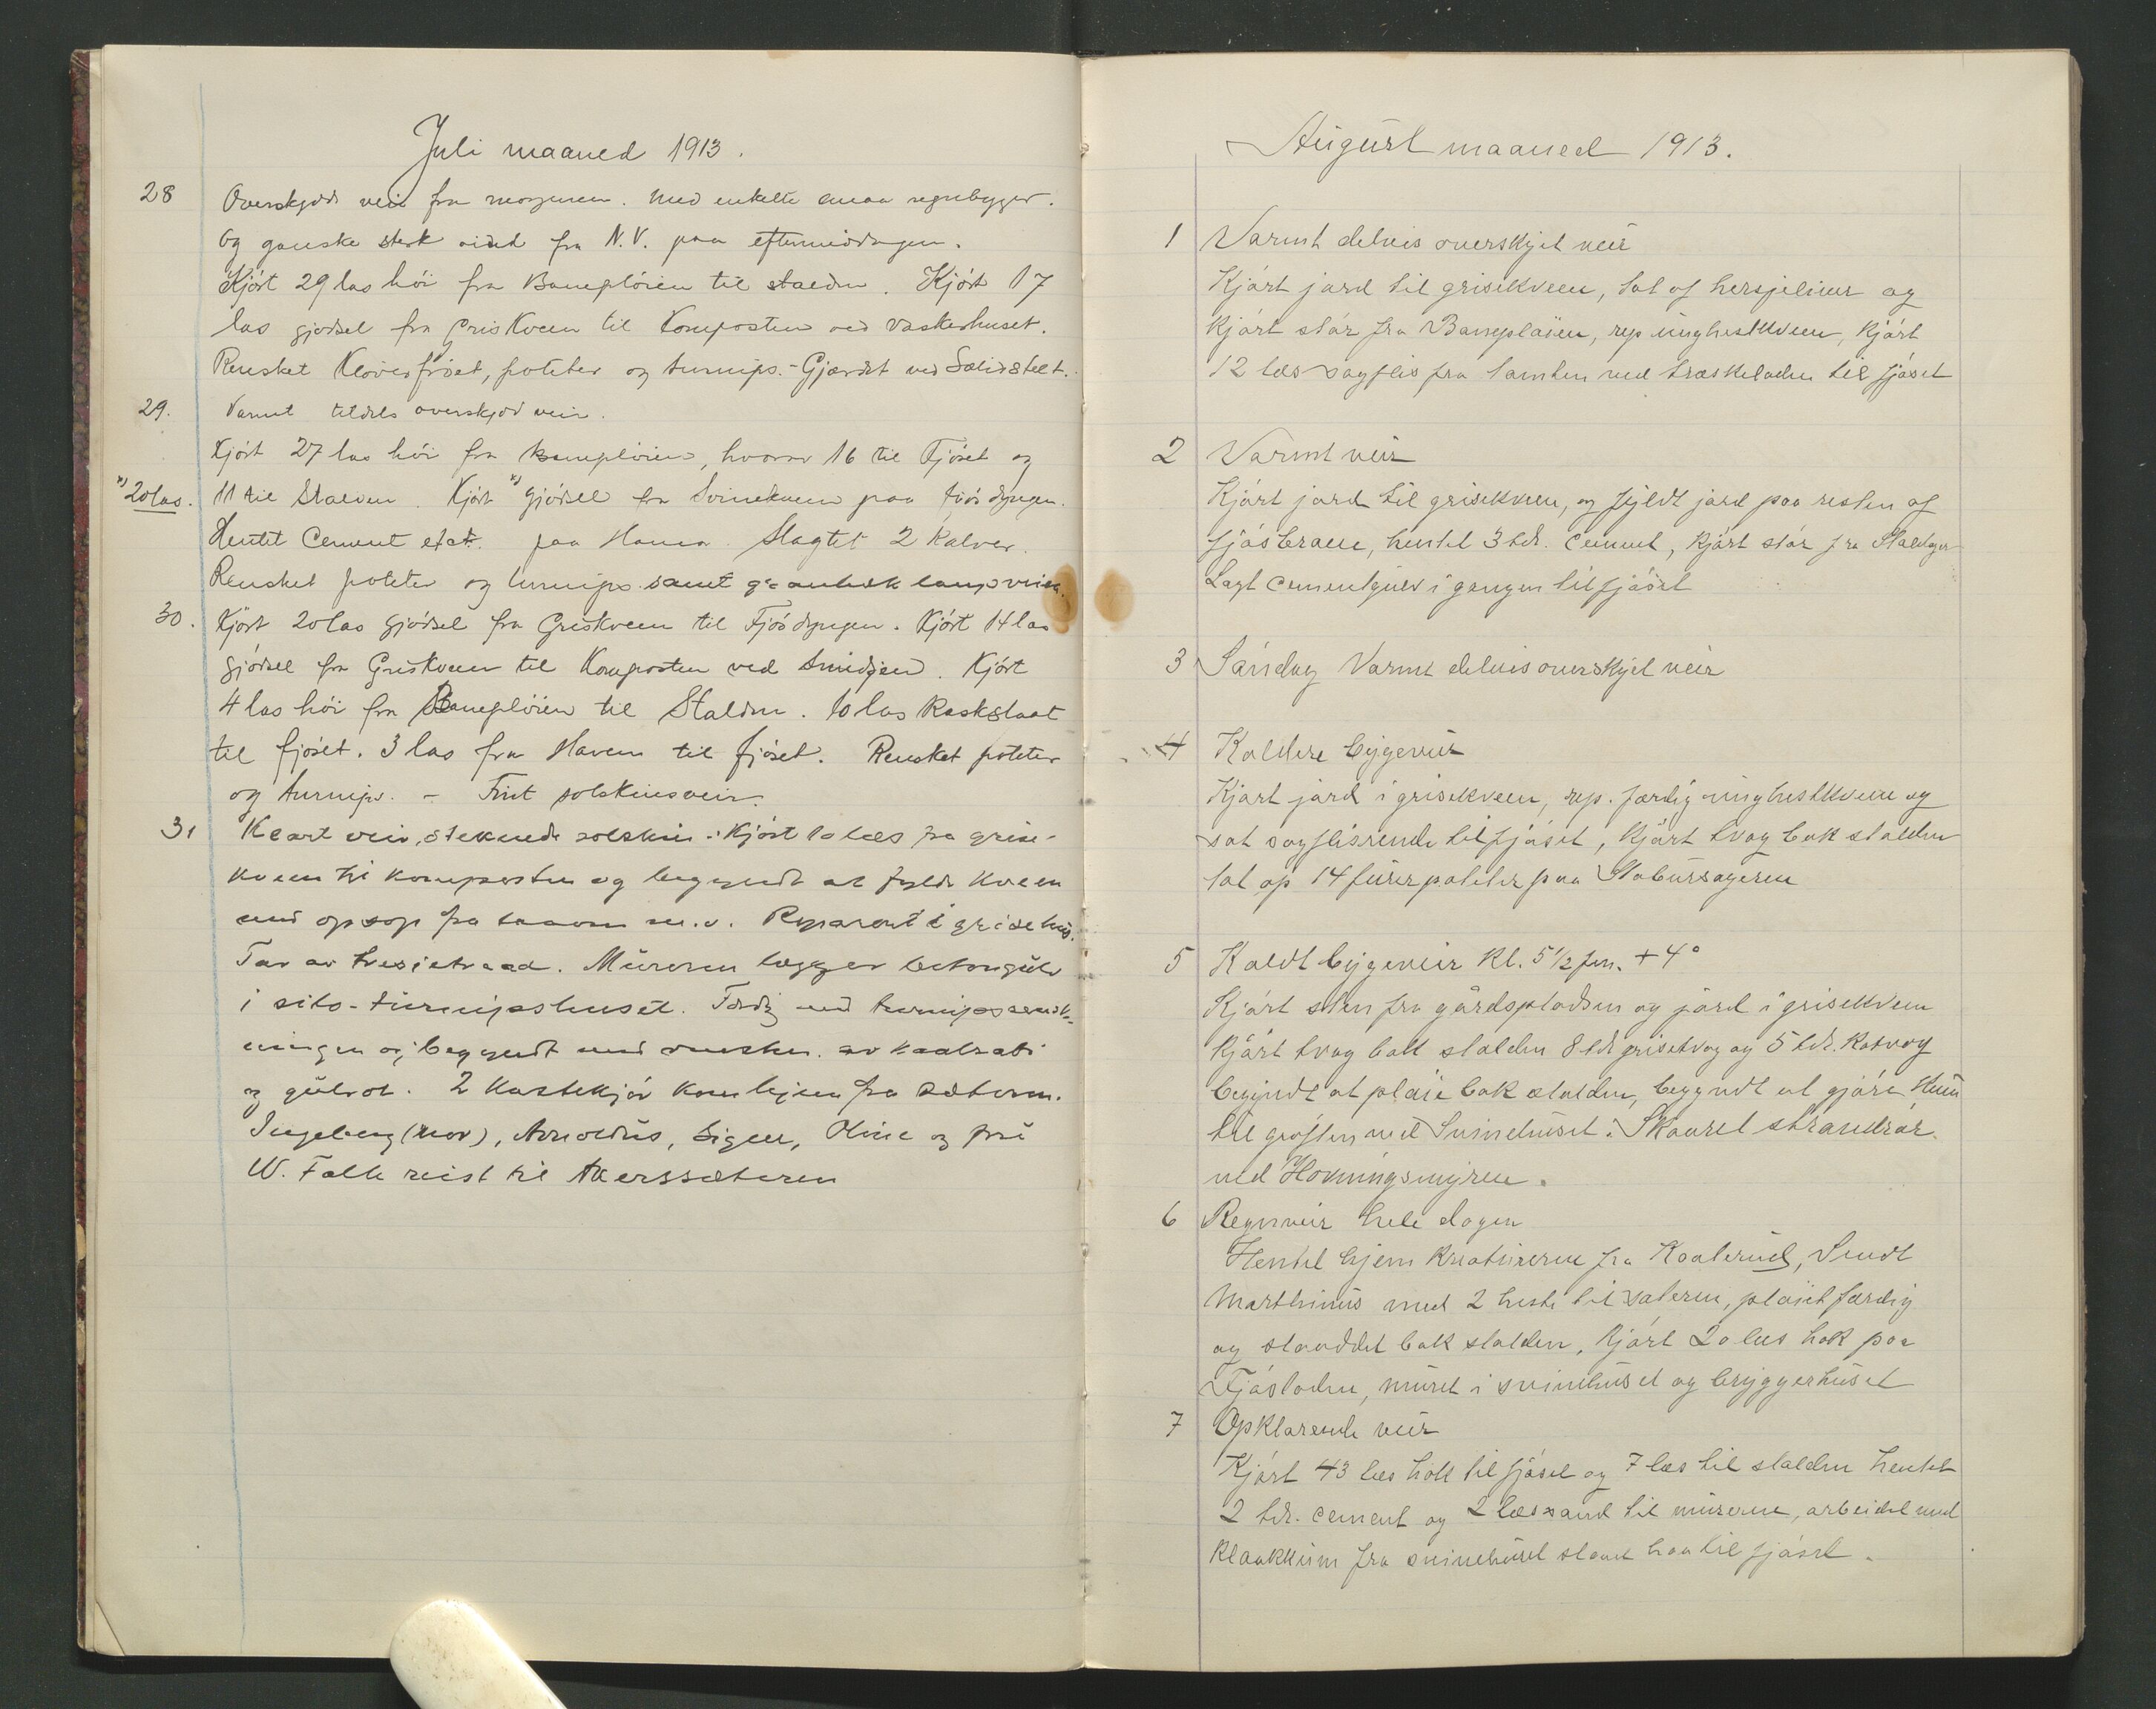 Juli maaned 1913.
28 Overskyet veir fra morgenen. Med enkelte smaa regnbyger.
Og ganske sterk vind fra N.V. paa eftermiddagen.
Kjört 29 las höi fra Baneplöien til stalden. Kjört 17
las gjødsel fra Griskveen til Komposten ved Vaskerhuset.
Rensket Klöverfröet, poteter og turnips. - Gjærdet ved
29. Varmt tildels overskyet veir.
Kjört 27 las höi fra Baneplöien, hvorav 16 til Fjöset og
x) 20 las. 11 til Stalden. Kjört x) gjödsel fra Svinekveen paa Fjösdyngen.
Hentet Cement etct. paa Hamar. Slagtet 2 Kalver.
Rensket poteter og turnips samt
30. Kjört 20 las gjödsel fra Griskveen til Fjösdyngen. Kjört 14 las
gjödsel fra Griskveen til Komposten ved Smidjen. Kjört
4 las höi fra Baneplöien til Stalden. 10 las Raskslaat
til fjöset. 3 las fra Haven til fjöset. Rensket poteter
og turnips. - Fint solskinsveir.
31 Klart veir, stekende solskin. Kjört 10 læs fra grise-
kveen til komposten og begyndt at fylde kveen
med opsop fra laaven m.v. Reparert i grisehus.
Tar av hesjetraad. Mureren lægger betongülv
i silo-türnipshuset. Færdig med turnipsrensk-
ningen og begyndt med rensken av kaalrabi
og gülrot. 2 Kastekjør kom hjem fra sæteren.
Ingeborg (Mor), Arnoldüs, Signe, Oline og frü
W. Falk reist til Akerssæteren
August maaned 1913.
1 Varmt delvis overskyet veir
Kjört jord til grisekveen, tat af hesjeliner og
Kjört stör fra Baneplöien, rep unghestkveen, Kjört
12 læs sagflis fra tomten ved træskeladen til fjöset
2 Varmt veir
Kjört jord til grisekveen, og fyldt jord paa resten af
fjösbroen, hentet 3 tdr. Cement, Kjört stör fra
Lagt cementgulv i gangen til fjöset
3 Söndag Varmt delvis overskyet veir
4 Koldere bygeveir
Kjört jord i grisekveen, rep. færdig unghestkveen og
sat sagflisrende til fjöset, Kjört tvag bak stalden
tat op 14 furer poteter paa Stabursageren
5 Koldt bygeveir Kl. 5 1/2 fm. + 4°
Kjört sten fra gårdspladsen og jord i grisekveen
Kjört tvag bak stalden 8 tdr grisetvag og 5 tdr. Kotvag
begyndt at plöie bak stalden, begyndt at gjöre
til gröften ved Svinehuset. Skaaret strandrör
ved Hovningsmyren.
6 Regnveir hele dagen
Hentet hjem Kreaturerne fra Kaalerud, Sendt
Marthinus med 2 heste til sæteren, plöiet færdig
og sladdet bak stalden, Kjört 20 læs haa paa
Fjösladen, muret i svinehuset og bryggerhuset
7 Opklarende veir
Kjört 43 læs haa til fjöset og 7 læs til stalden hentet
2 tdr. cement og 2 læs sand til murerne, arbeidet med
fra svinehuset slaaet haa til fjöset.